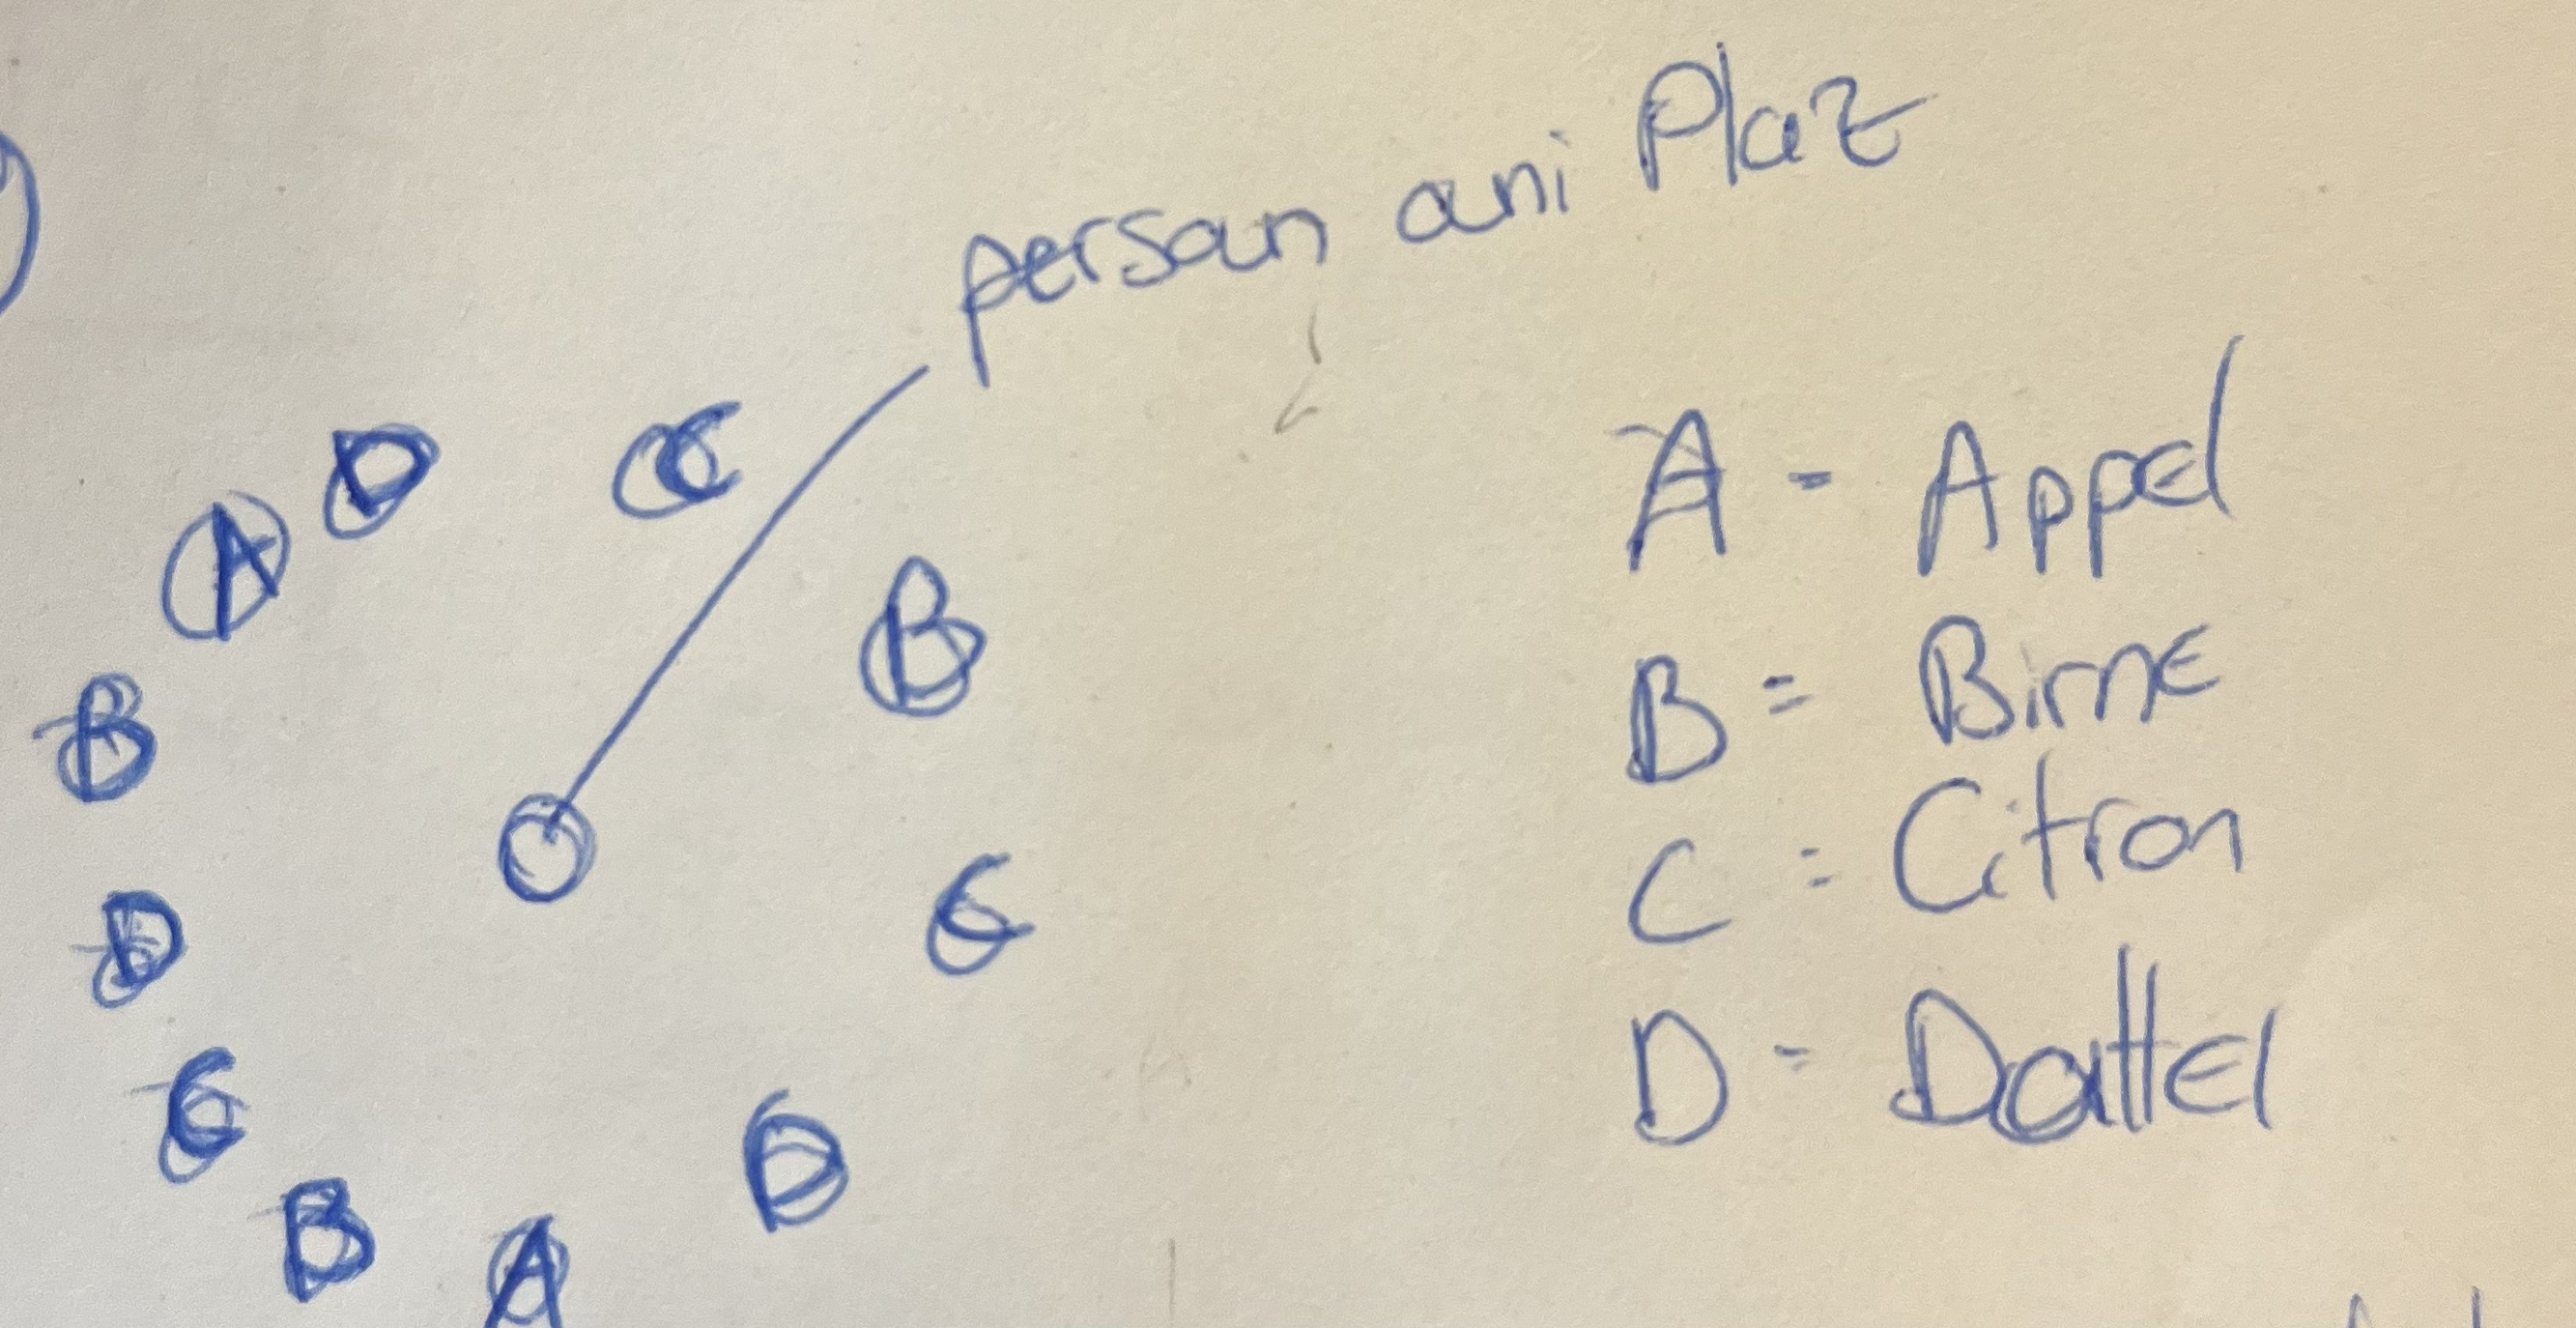 person ani Plaz
D C
A
B B
D C
C D
B A
A = Appel
B = Birne
C = Citron
D = Dattel